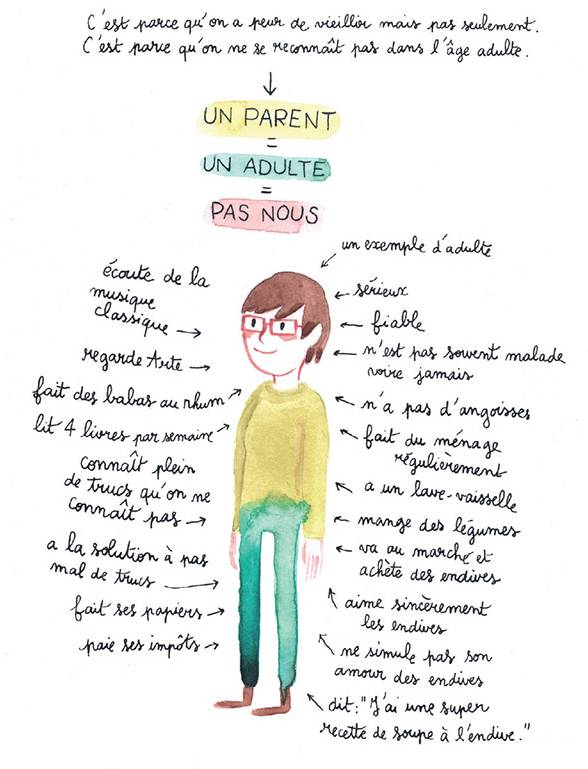 C'est parce qu'on a peur de vieillir mais pas seulement.
C'est parce qu'on ne se reconnaît pas dans l'âge adulte.
UN PARENT
=
UN ADULTE
=
PAS NOUS
un exemple d'adulte
écoute de la
musique
classique
regarde Arte
fait des babas au rhum
lit 4 livres par semaine
connaît plein
de trucs qu'on ne
connaît pas
a la solution à pas
mal de trucs
fait ses papiers
paie ses impôts
sérieux
fiable
n'est pas souvent malade
voire jamais
n'a pas d'angoisses
fait du ménage
régulièrement
a un lave-vaisselle
mange des légumes
va au marché et
achète des endives
aime sincèrement
les endives
ne simule pas son
amour des endives
dit: "J'ai une super
recette de soupe à l'endive."